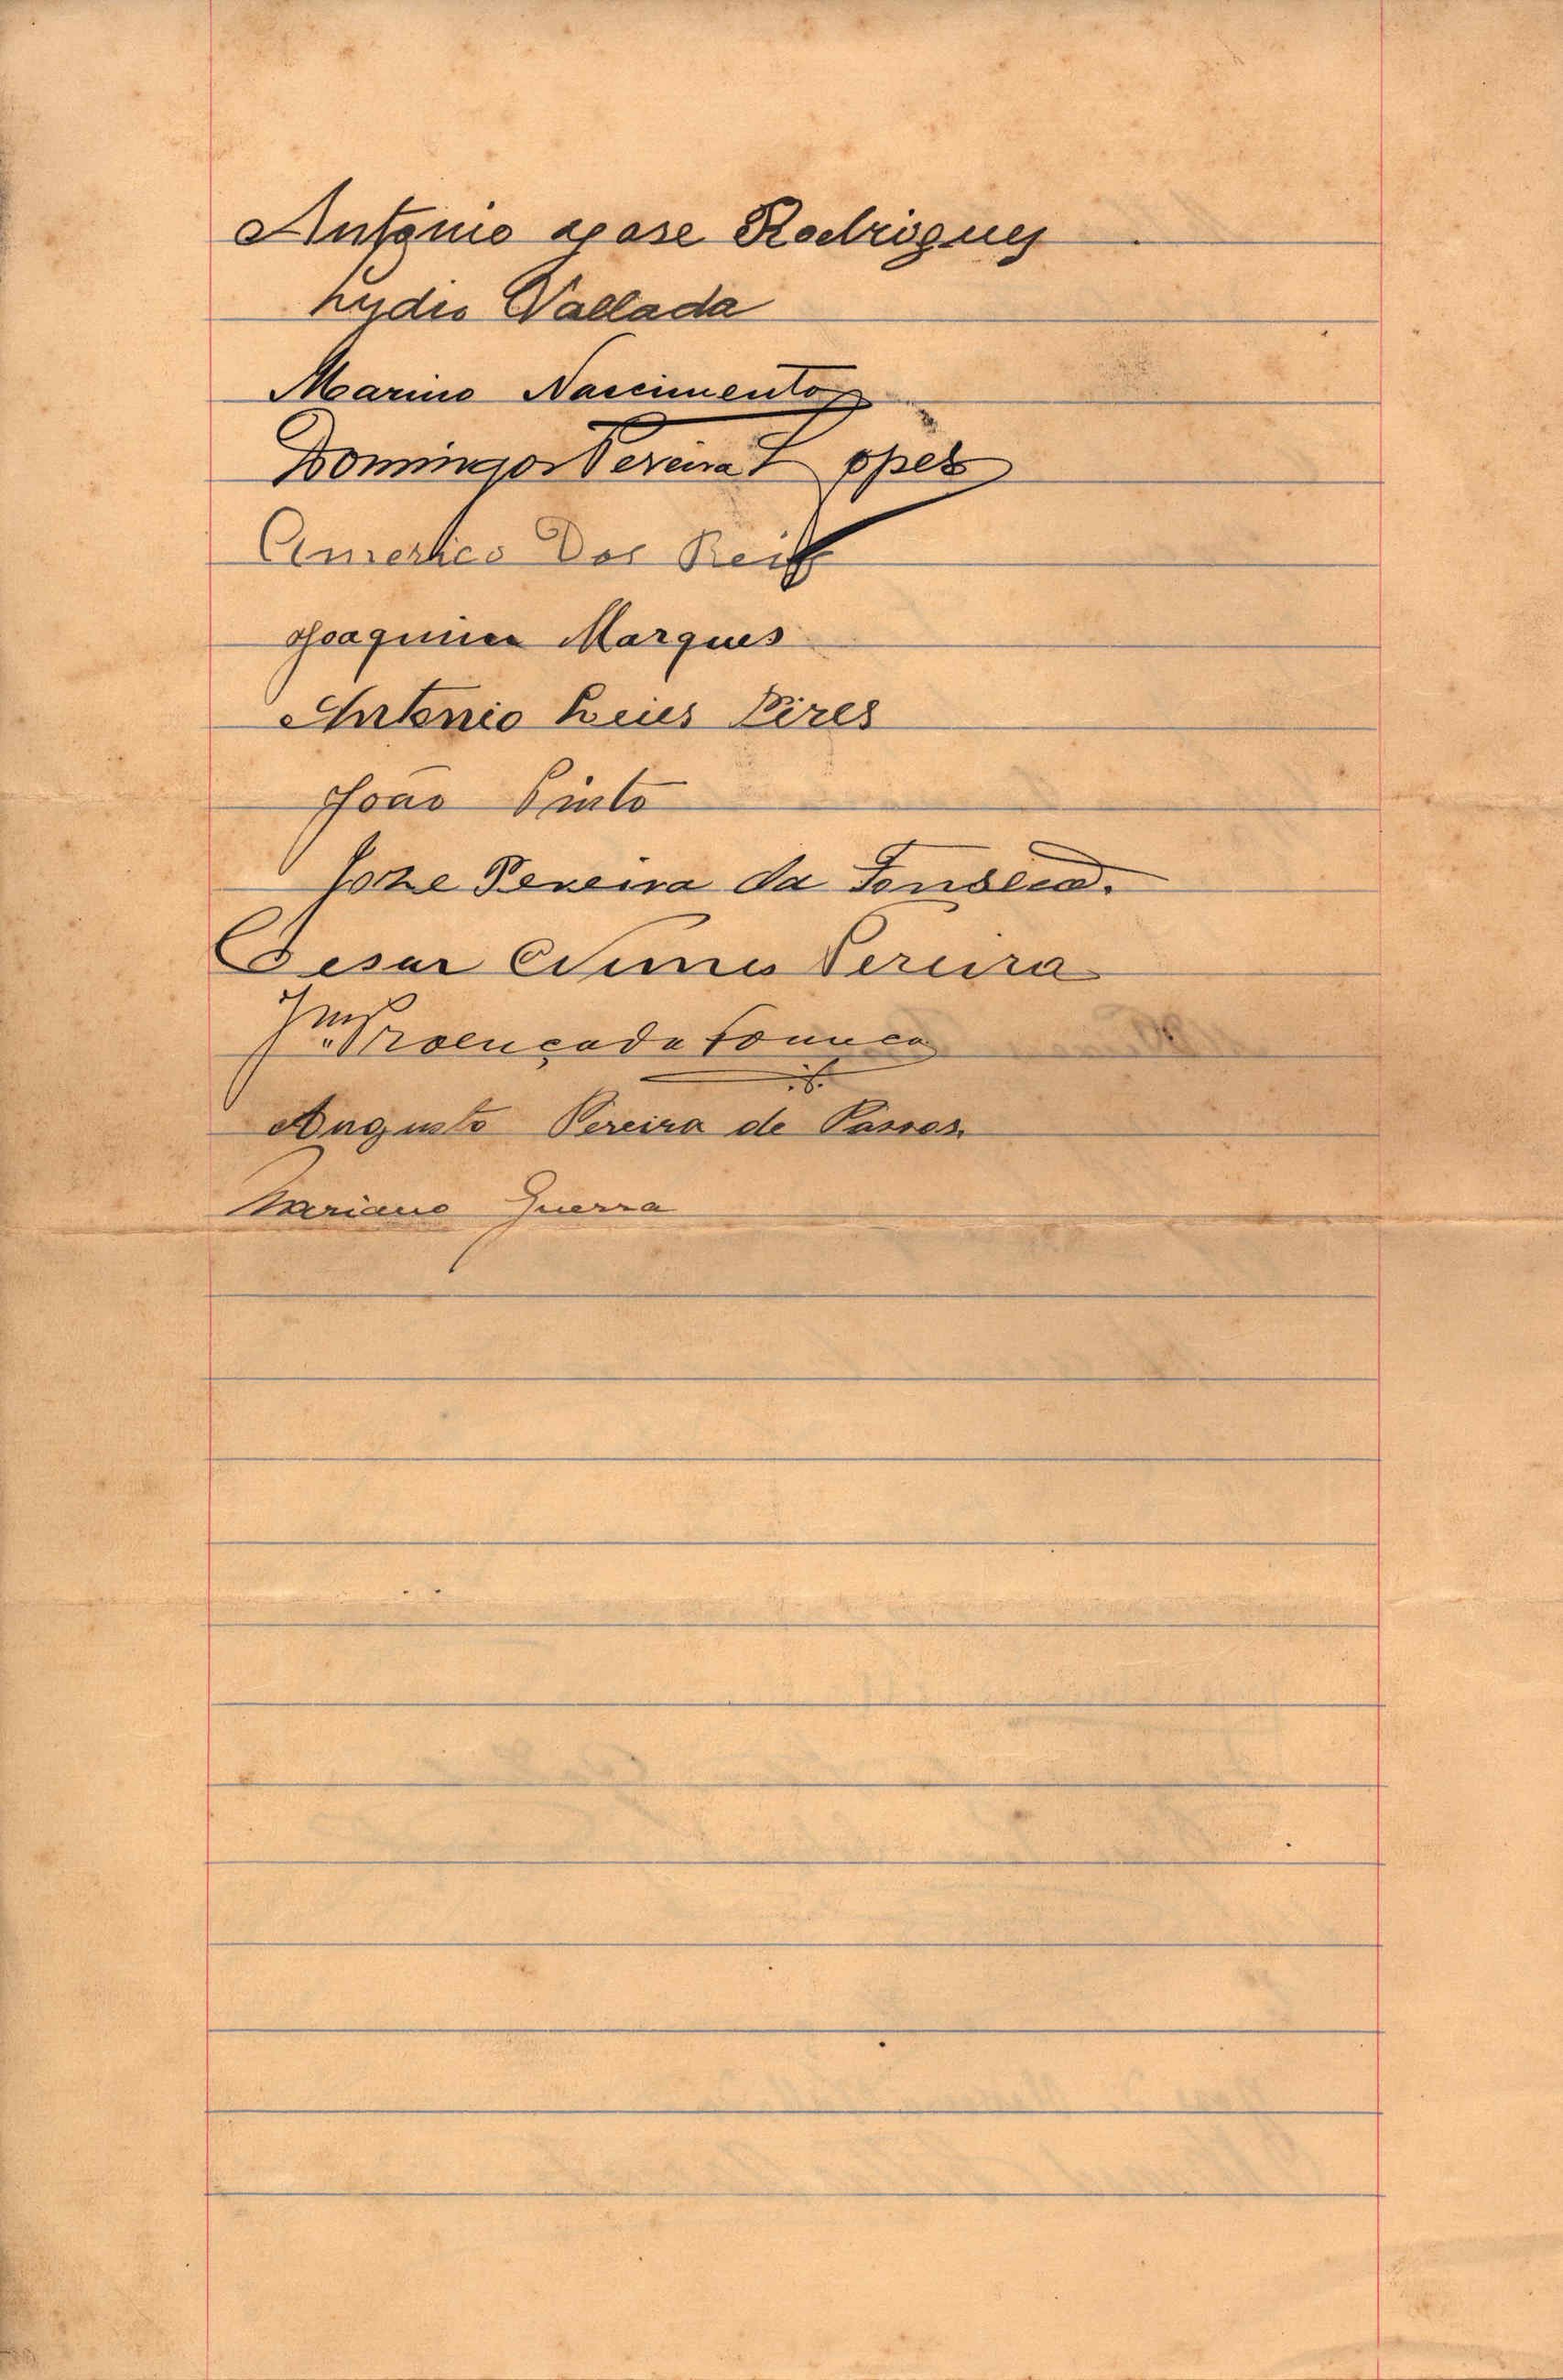 Antonio Jose Rodrigues
Lydio Vallada
Marino Nascimento
Domingos Pereira Lopes
Americo Dos Reis
Joaquim Marques
Antonio Luis Pires
João Pinto
Jose Pereira da Fonseca.
Cesar Nunes Pereira
Proença da Fonseca
Augusto Pereira de Passos
Mariano Guerra